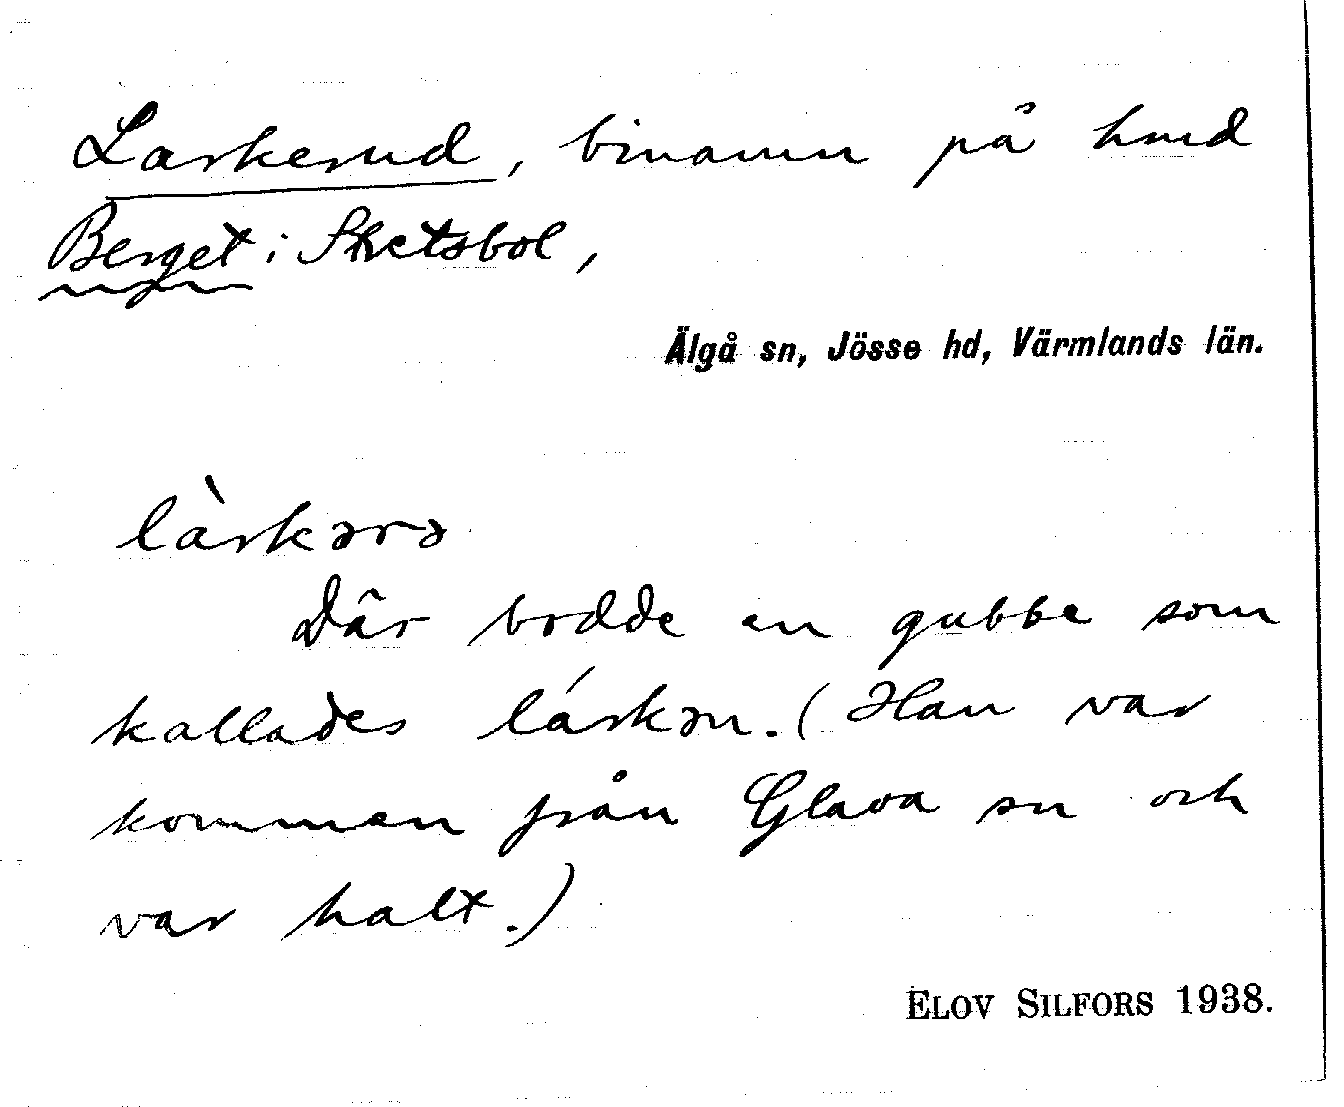 Larkerud, binamn på hmd
Berget i Sketsbol,
Älgå sn, Jösse hd, Värmlands län.
làrkərə
Där bodde en gubbe som
kallades lárkən. (Han var
kommen från Glava sn och
var halt.)
ELOV SILFORS 1938.